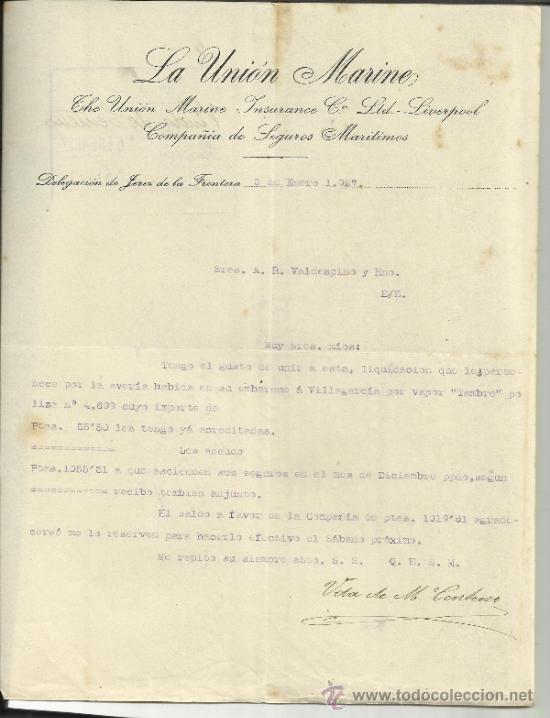 La Unión Marine
The Unión Marine Insurance Cº Ltd.-Liverpool
Compañia de Seguros Maritimos
Delegación de Jerez de la Frontera 3 de Enero 1.927.
Sres. A. R. Valdespino y Hno.
Muy Sres. mios:
Tengo el gusto de unir a esta, liquidacion que les perte-
nece por la averia habida en su embarque á Villagarcía por vapor "Tambre" po
liza nº 4.699 cuyo importe de
Ptas. 35'50 les tengo yá acreditadas.
============= Les adeudo
Ptas.1055'31 a que ascienden sus seguros en el mes de Diciembre ppdo, segun
============ recibo tambien adjunto.
El saldo a favor de la Compañia de ptas. 1019'81 agrade-
ceré me lo reserven para hacerlo efectivo el Sábado próximo.
Me repito su siempre atto. S. S. Q. E. S. M.
Vda de M
todocoleccion
www.todocoleccion.net